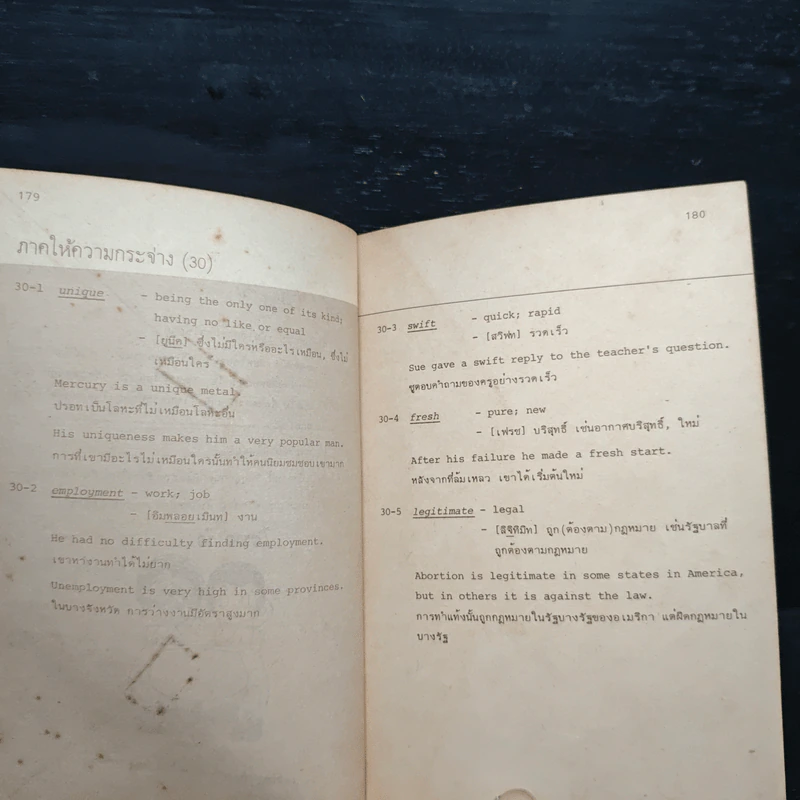 179
ภาคให้ความกระจ่าง (30)
30-1 unique - being the only one of its kind;
having no like or equal
- [ยูนีค] ซึ่งไม่มีใครหรืออะไรเหมือน, ซึ่งไม่
เหมือนใคร
Mercury is a unique metal.
ปรอทเป็นโลหะที่ไม่เหมือนโลหะอื่น
His uniqueness makes him a very popular man.
การที่เขามีอะไรไม่เหมือนใครนั้นทำให้คนนิยมชมชอบเขามาก
30-2 employment - work; job
- [อิมพลอยเมินท] งาน
He had no difficulty finding employment.
เขาหางานทำได้ไม่ยาก
Unemployment is very high in some provinces.
ในบางจังหวัด การว่างงานมีอัตราสูงมาก
180
30-3 swift - quick; rapid
- [สวิฟท] รวดเร็ว
Sue gave a swift reply to the teacher's question.
ซูตอบคำถามของครูอย่างรวดเร็ว
30-4 fresh - pure; new
- [เฟรช] บริสุทธิ์ เช่นอากาศบริสุทธิ์, ใหม่
After his failure he made a fresh start.
หลังจากที่ล้มเหลว เขาได้เริ่มต้นใหม่
30-5 legitimate - legal
- [ลิจิทิมิท] ถูก(ต้องตาม)กฎหมาย เช่นรัฐบาลที่
ถูกต้องตามกฎหมาย
Abortion is legitimate in some states in America,
but in others it is against the law.
การทำแท้งนั้นถูกกฎหมายในรัฐบางรัฐของอเมริกา แต่ผิดกฎหมายใน
บางรัฐ